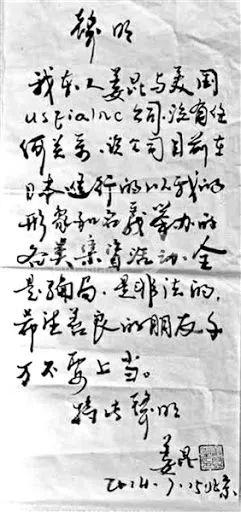 聲明
我本人姜昆与美国
usfiaInc公司.没有任
何关系.该公司目前在
日本進行的以我的
形象和名義举办的
各类集資活动.全
是骗局.是非法的,
希望善良的朋友千
万不要上当。
特此聲明
姜昆
北京